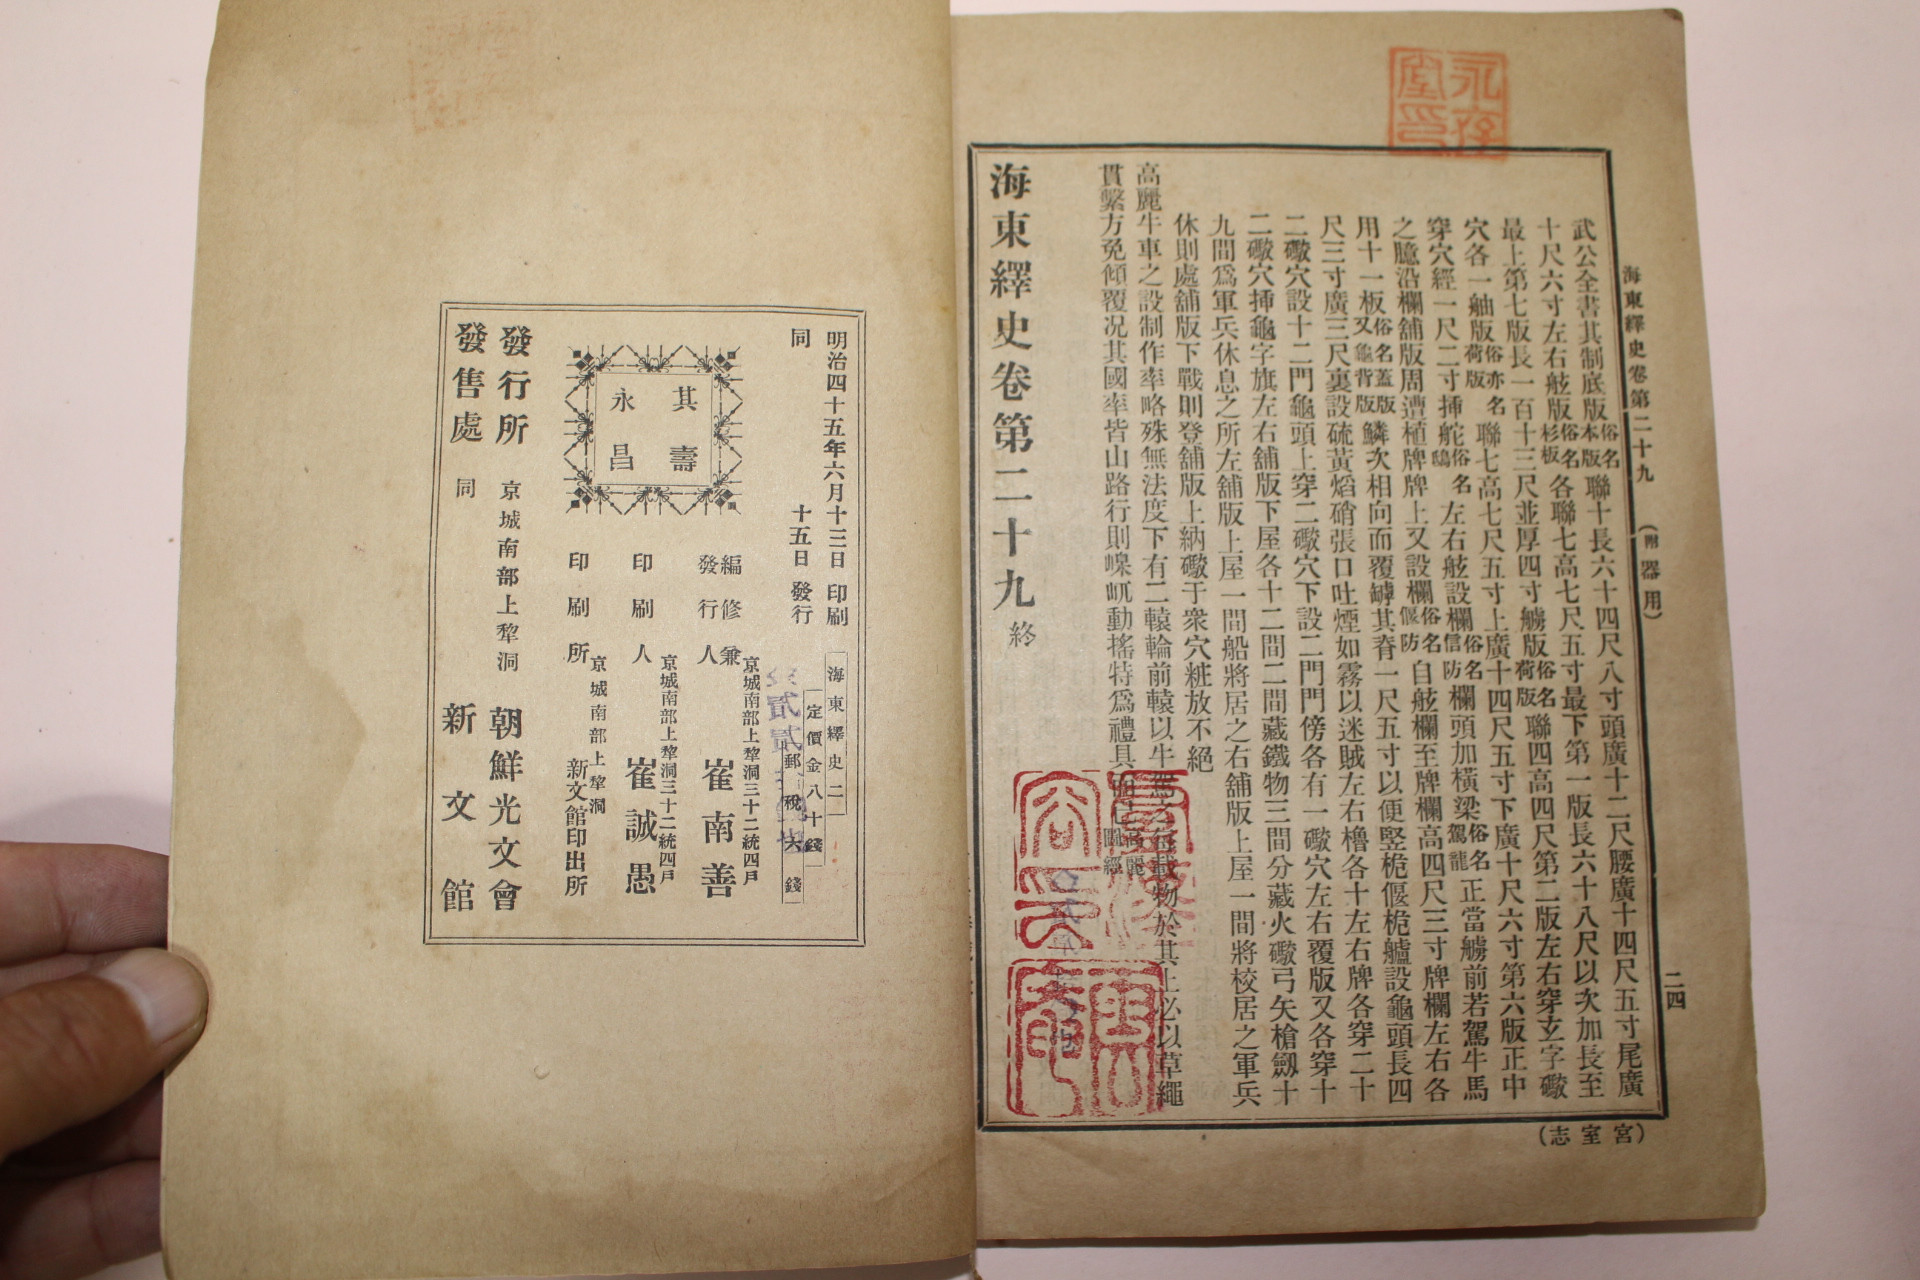 海東繹史卷第二十九 (附器用)
二四
(宮室志)
武公全書其制底版俗名本版聯十長六十四尺八寸頭廣十二尺腰廣十四尺五寸尾廣
十尺六寸左右舷版俗名杉板各聯七高七尺五寸最下第一版長六十八尺以次加長至
最上第七版長一百十三尺並厚四寸艣版俗名荷版聯四高四尺第二版左右穿玄字礮
穴各一舳版俗亦名荷版聯七高七尺五寸上廣十四尺五寸下廣十尺六寸第六版正中
穿穴經一尺二寸揷舵俗名鴟左右舷設欄俗名信防欄頭加橫梁俗名駕龍正當艣前若駕牛馬
之臆沿欄舖版周遭植牌牌上又設欄俗名偃防自舷欄至牌欄高四尺三寸牌欄左右各
用十一板俗名蓋版又龜背版鱗次相向而覆罅其脊一尺五寸以便竪桅偃桅艫設龜頭長四
尺三寸廣三尺裏設硫黃焰硝張口吐煙如霧以迷賊左右櫓各十左右牌各穿二十
二礮穴設十二門龜頭上穿二礮穴下設二門門傍各有一礮穴左右覆版又各穿十
二礮穴揷龜字旗左右舖版下屋各十二間二間藏鐵物三間分藏火礮弓矢槍劔十
九間爲軍兵休息之所左舖版上屋一間船將居之右舖版上屋一間將校居之軍兵
休則處舖版下戰則登舖版上納礮于衆穴粧放不絕
高麗牛車之設制作率略殊無法度下有二轅輪前轅以牛駕之每載物於其上必以草繩
貫繫方免傾覆况其國率皆山路行則嵲屼動搖特爲禮具而已高麗圖經
海東繹史卷第二十九終
永存堂印
明治四十五年六月十三日 印刷
同 十五日 發行
海東繹史二
定價金八十錢
郵稅六錢
其壽
永昌
編修兼發行人 京城南部上犂洞三十二統四戶 崔南善
印刷人 京城南部上犂洞三十二統四戶 崔誠愚
印刷所 京城南部上犂洞 新文館印出所
發行所 京城南部上犂洞 朝鮮光文會
發售處 同 新文館